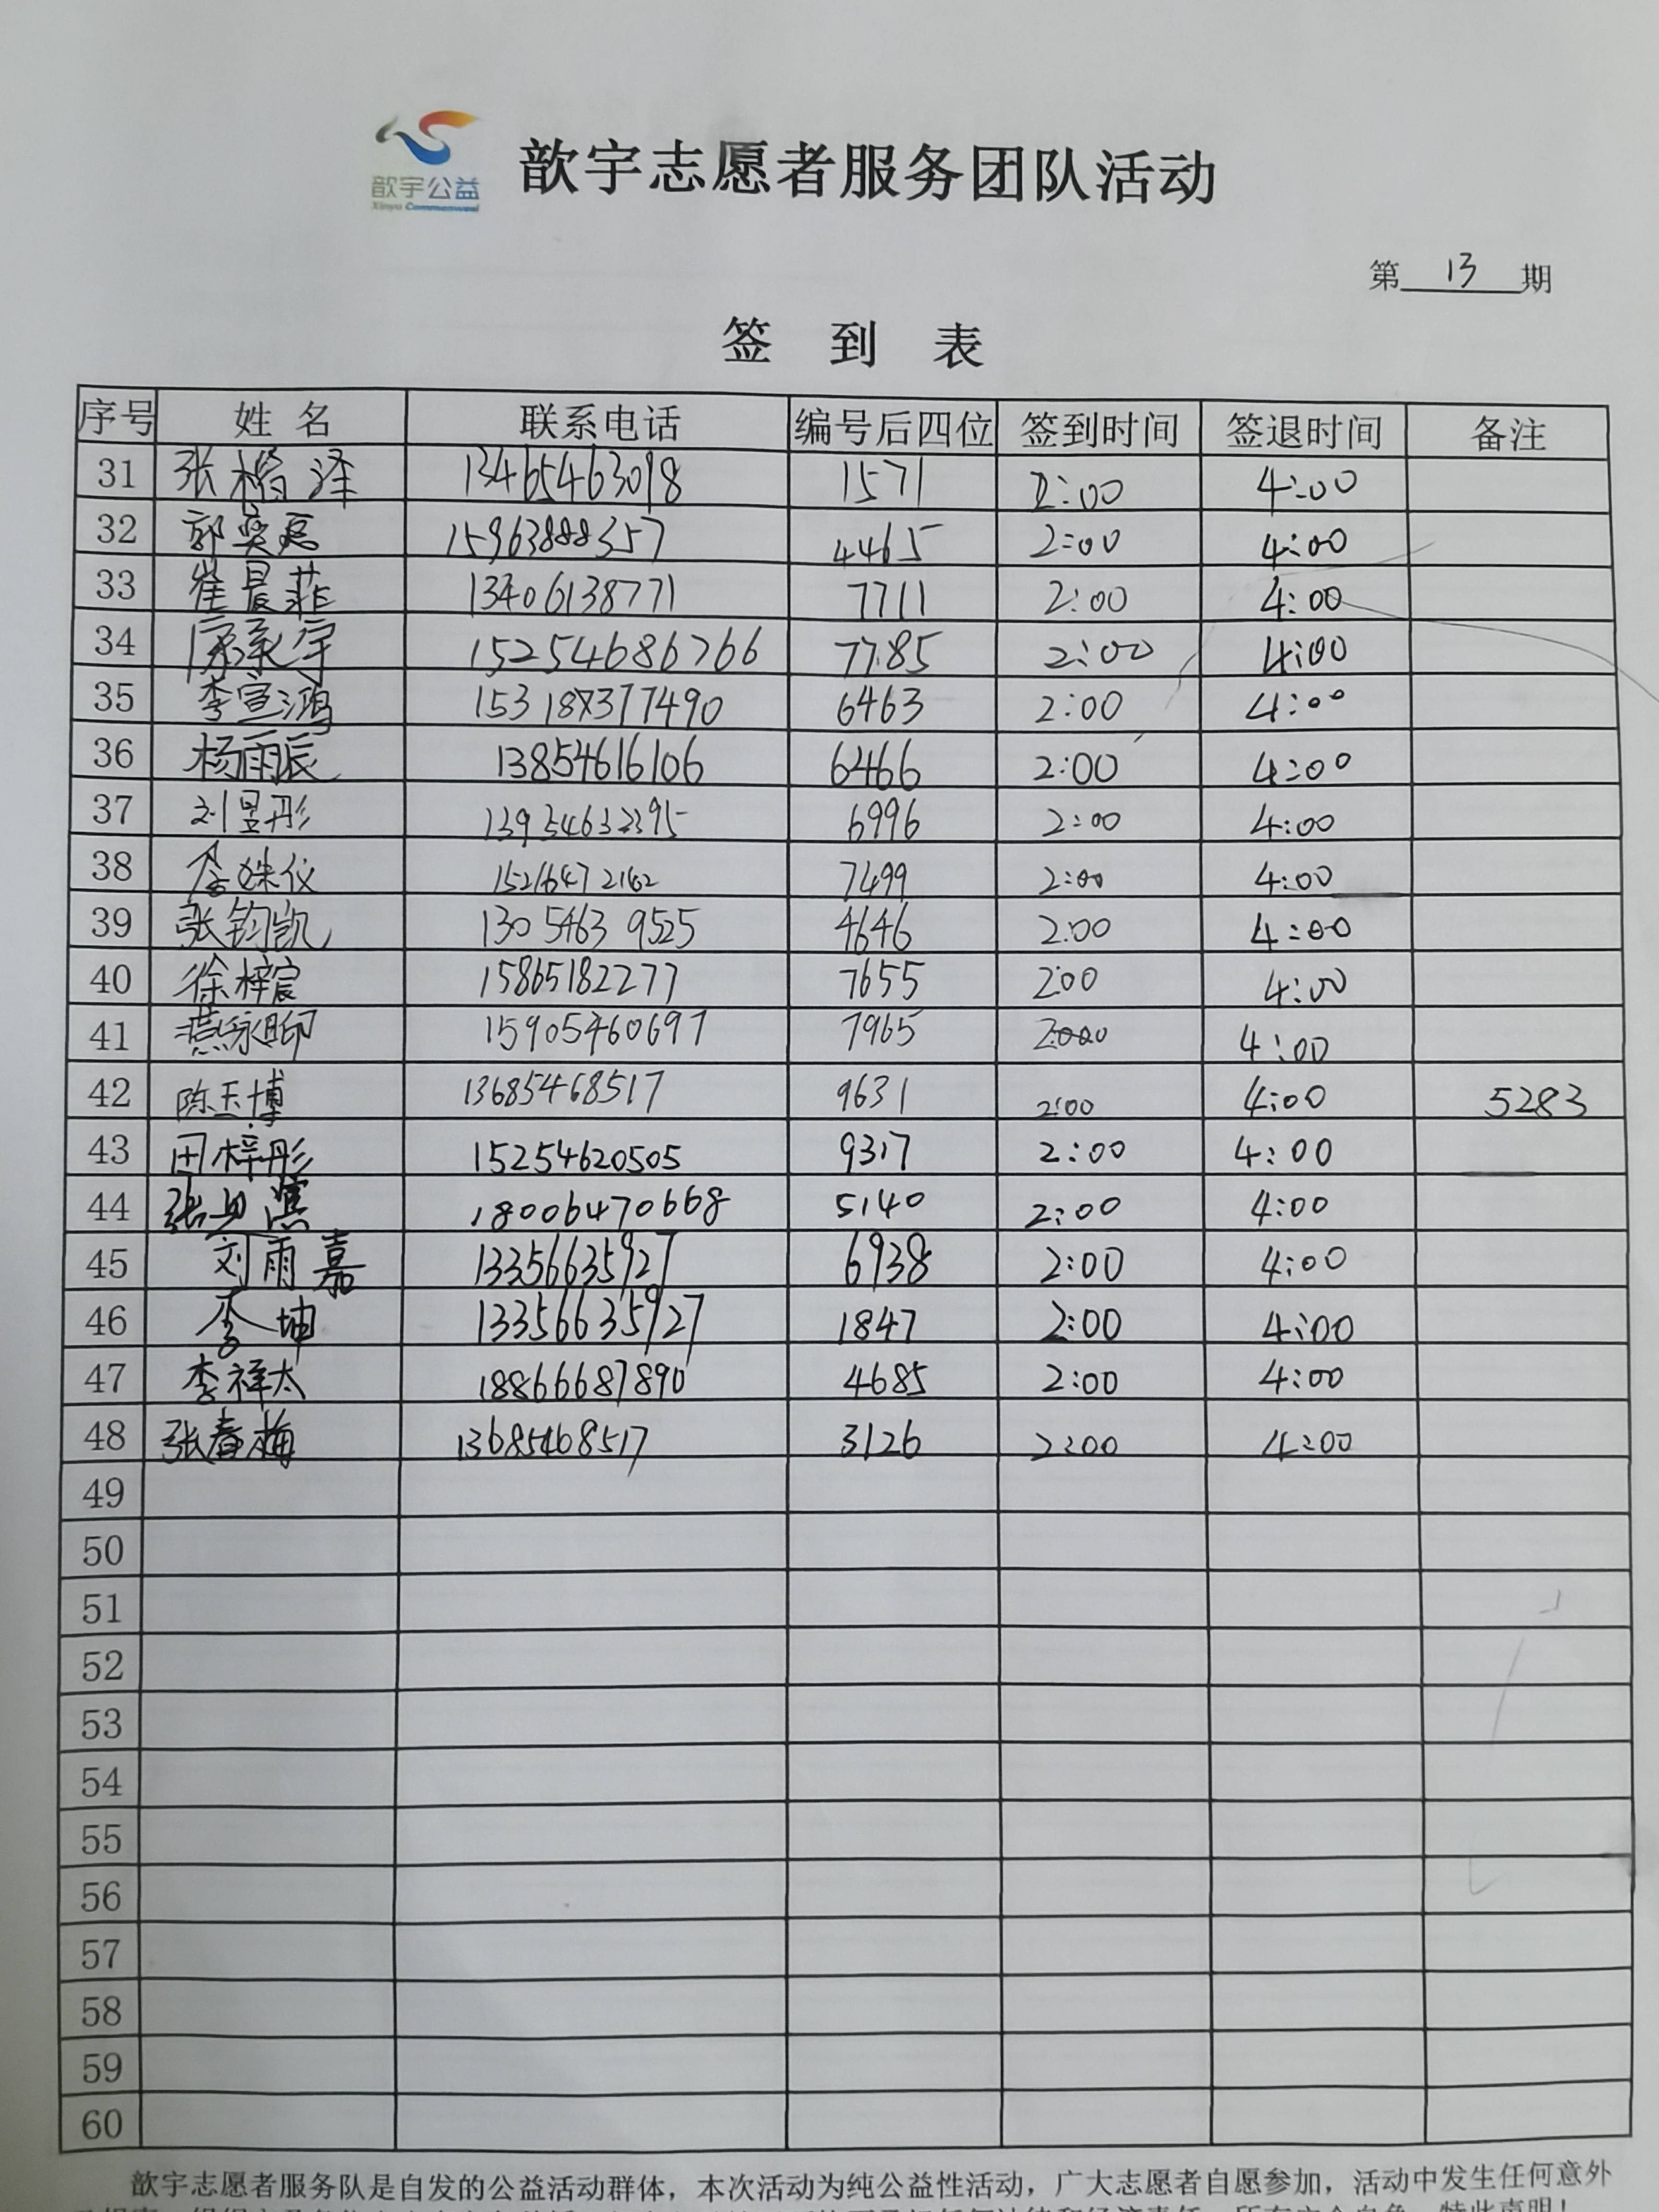 歆宇公益
Xinyu Commonweal
歆宇志愿者服务团队活动
第 13 期
签 到 表
序号 姓名 联系电话 编号后四位 签到时间 签退时间 备注
31 张楷泽 13465463098 1571 2:00 4:00
32 郭奕 15963888357 4465 2:00 4:00
33 崔晨菲 13406138771 7711 2:00 4:00
34 宇 15254686766 7785 2:00 4:00
35 李宣鸿 6463 2:00 4:00
36 杨雨辰 13854616106 6466 2:00 4:00
37 刘昱彤 13954632395 6996 2:00 4:00
38 李姝仪 15216472162 7499 2:00 4:00
39 张钧凯 13054639525 4646 2:00 4:00
40 徐梓宸 15865182277 7655 2:00 4:00
41 燕 15905460697 7965 2:00 4:00
42 陈玉博 13685468517 9631 2:00 4:00 5283
43 田梓彤 15254620505 9317 2:00 4:00
44 张 18006470668 5140 2:00 4:00
45 刘雨嘉 13356635927 6938 2:00 4:00
46 李坤 13356635927 1847 2:00 4:00
47 李祥太 18866687890 4685 2:00 4:00
48 张春梅 13685468517 3126 2:00 4:00
49
50
51
52
53
54
55
56
57
58
59
60
歆宇志愿者服务队是自发的公益活动群体，本次活动为纯公益性活动，广大志愿者自愿参加，活动中发生任何意外